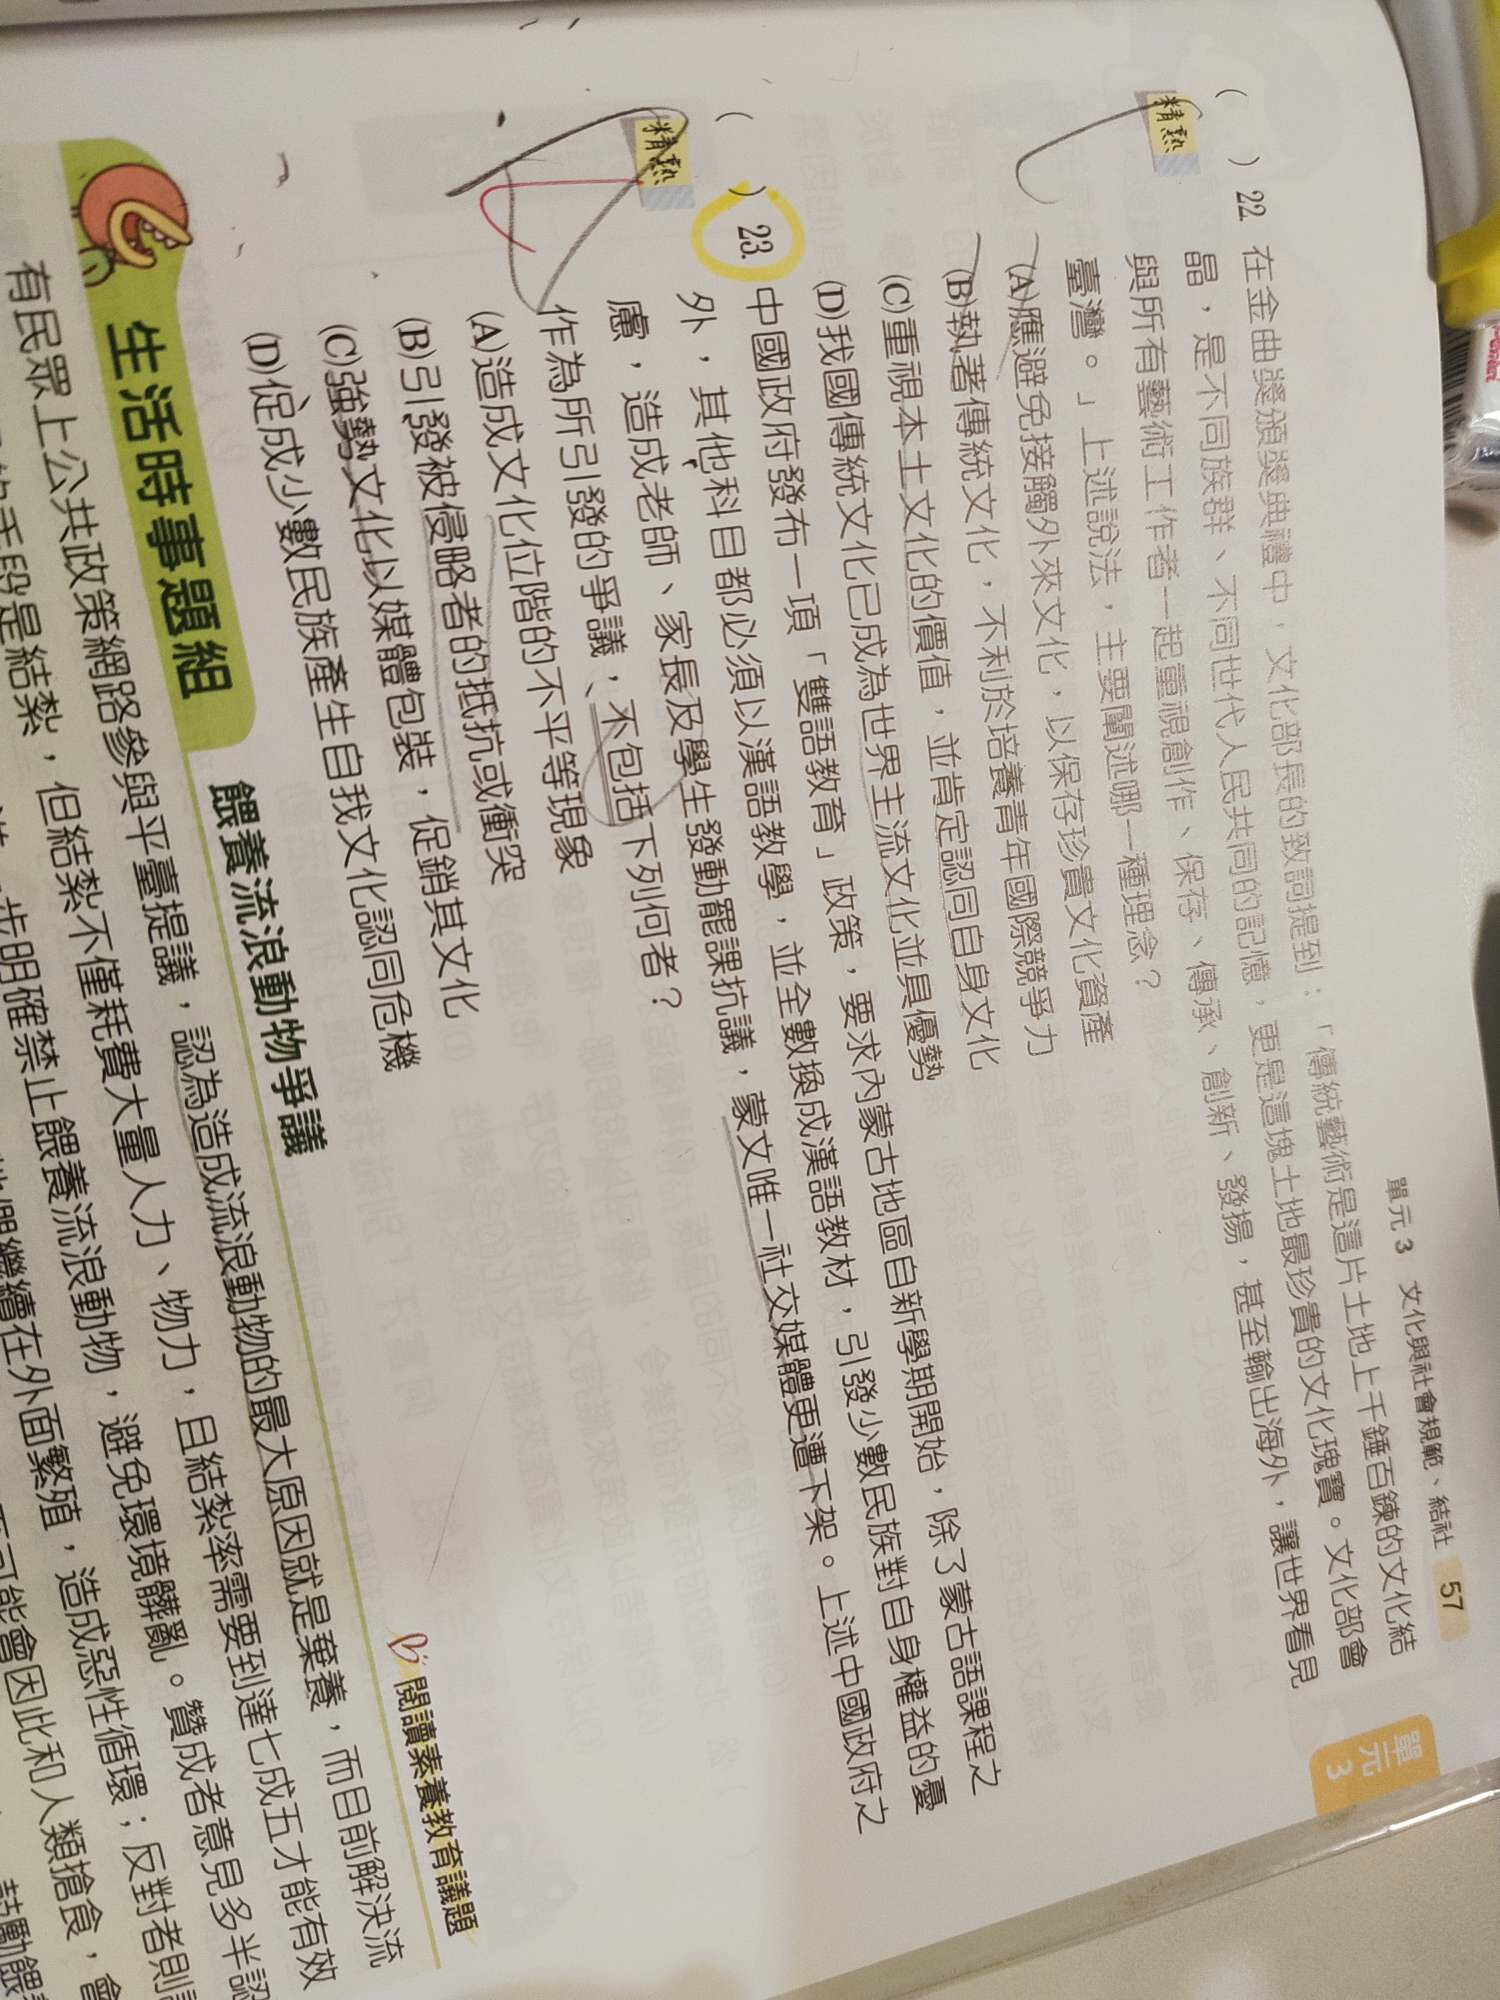 單元3 文化與社會規範、結社 57
單元3
( ) 22. 在金曲獎頒獎典禮中，文化部長的致詞提到：「傳統藝術是這片土地上千錘百鍊的文化結
晶，是不同族群、不同世代人民共同的記憶，更是這塊土地最珍貴的文化瑰寶。文化部會
與所有藝術工作者一起重視創作、保存、傳承、創新、發揚，甚至輸出海外，讓世界看見
臺灣。」上述說法，主要闡述哪一種理念？
(A)應避免接觸外來文化，以保存珍貴文化資產
(B)執著傳統文化，不利於培養青年國際競爭力
(C)重視本土文化的價值，並肯定認同自身文化
(D)我國傳統文化已成為世界主流文化並具優勢
精熟
( ) 23. 中國政府發布一項「雙語教育」政策，要求內蒙古地區自新學期開始，除了蒙古語課程之
外，其他科目都必須以漢語教學，並全數換成漢語教材，引發少數民族對自身權益的憂
慮，造成老師、家長及學生發動罷課抗議，蒙文唯一社交媒體更遭下架。上述中國政府之
作為所引發的爭議，不包括下列何者？
(A)造成文化位階的不平等現象
(B)引發被侵略者的抵抗或衝突
(C)強勢文化以媒體包裝，促銷其文化
(D)促成少數民族產生自我文化認同危機
精熟
生活時事題組
閱讀素養教育議題
餵養流浪動物爭議
有民眾上公共政策網路參與平臺提議，認為造成流浪動物的最大原因就是棄養，而目前解決流
的手段是結紮，但結紮不僅耗費大量人力、物力，且結紮率需要到達七成五才能有效
步明確禁止餵養流浪動物，避免環境髒亂。贊成者意見多半認
繼續在外面繁殖，造成惡性循環；反對者則
可能會因此和人類搶食，會